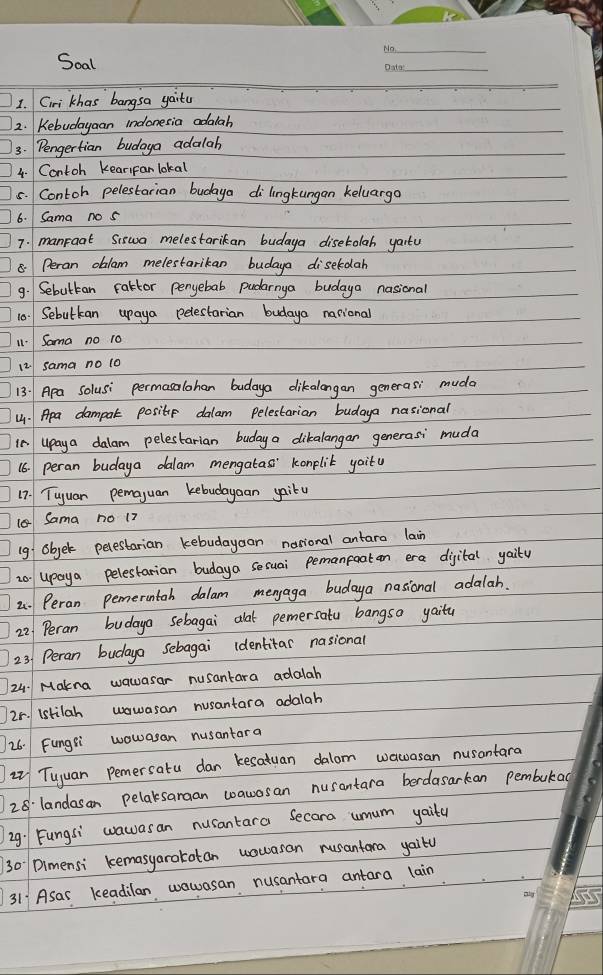 No.
Soal
Date:
1. Ciri khas bangsa yaitu
2. Kebudayaan indonesia adalah
3. Pengertian budaya adalah
4. Contoh kearifan lokal
5. Contoh pelestarian budaya di lingkungan keluarga
6. Sama no 5
7. manfaat siswa melestarikan budaya disekolah yaitu
8. Peran dalam melestarikan budaya disekolah
9. Sebutkan faktor penyebab pudarnya budaya nasional
10. Sebutkan upaya pelestarian budaya nasional
11. Sama no 10
12. sama no 10
13. Apa solusi permasalahan budaya dikalangan generasi muda
14. Apa dampak positif dalam pelestarian budaya nasional
15. upaya dalam pelestarian budaya dikalangan generasi muda
16. peran budaya dalam mengatasi konflik yaitu
17. Tujuan pemajuan kebudayaan yaitu
18. Sama no 17
19. Objek pelestarian kebudayaan nasional antara lain
20. upaya pelestarian budaya sesuai pemanfaatan era digital yaitu
21. Peran pemerintah dalam menjaga budaya nasional adalah.
22. Peran budaya sebagai alat pemersatu bangsa yaitu
23. Peran budaya sebagai identitas nasional
24. Makna wawasan nusantara adalah
25. Istilah wawasan nusantara adalah
26. Fungsi wawasan nusantara
27. Tujuan Pemersatu dan kesatuan dalam wawasan nusantara
28. landasan pelaksanaan wawasan nusantara berdasarkan pembukaa
29. Fungsi wawasan nusantara secara umum yaitu
30. Dimensi kemasyarakatan wawasan nusantara yaitu
31. Asas keadilan wawasan nusantara antara lain